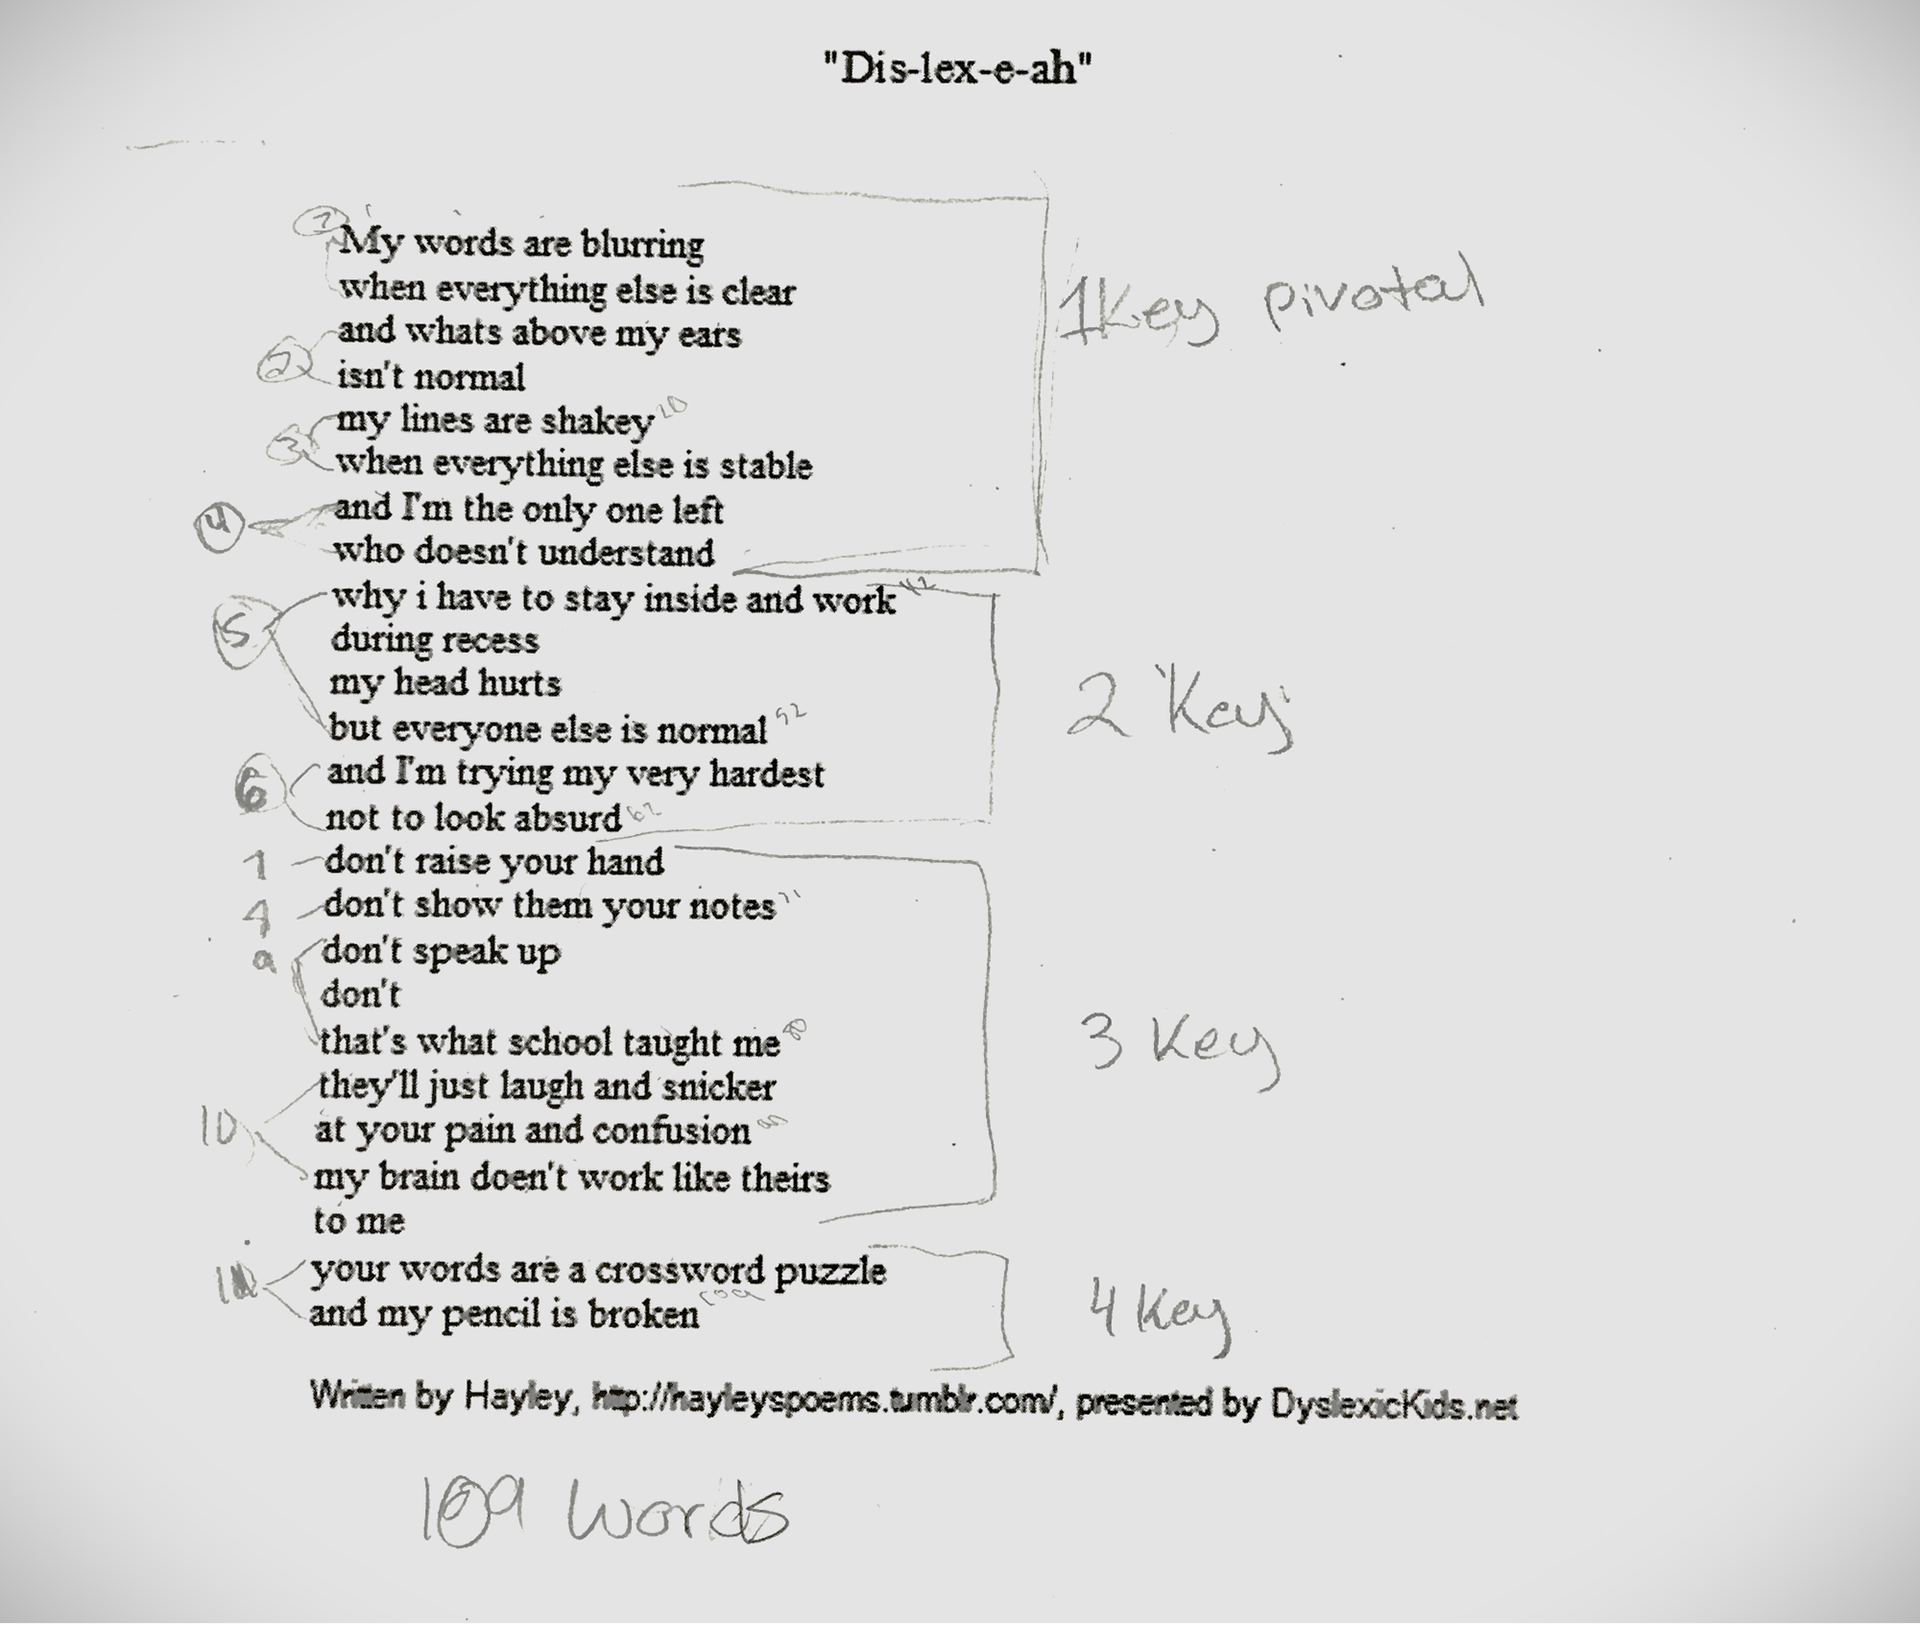 "Dis-lex-e-ah"
My words are blurring
when everything else is clear
1 Key pivotal
and whats above my ears
2
isn't normal
my lines are shakey
3
when everything else is stable
4
and I'm the only one left
who doesn't understand
why i have to stay inside and work
5
during recess
my head hurts
2 Key
but everyone else is normal
6
and I'm trying my very hardest
not to look absurd 62
don't raise your hand
don't show them your notes
don't speak up
don't
that's what school taught me
3 Key
they'll just laugh and snicker
10
at your pain and confusion
my brain doen't work like theirs
to me
your words are a crossword puzzle
and my pencil is broken
4 Key
Written by Hayley, http://hayleyspoems.tumblr.com/, presented by DyslexicKids.net
109 words